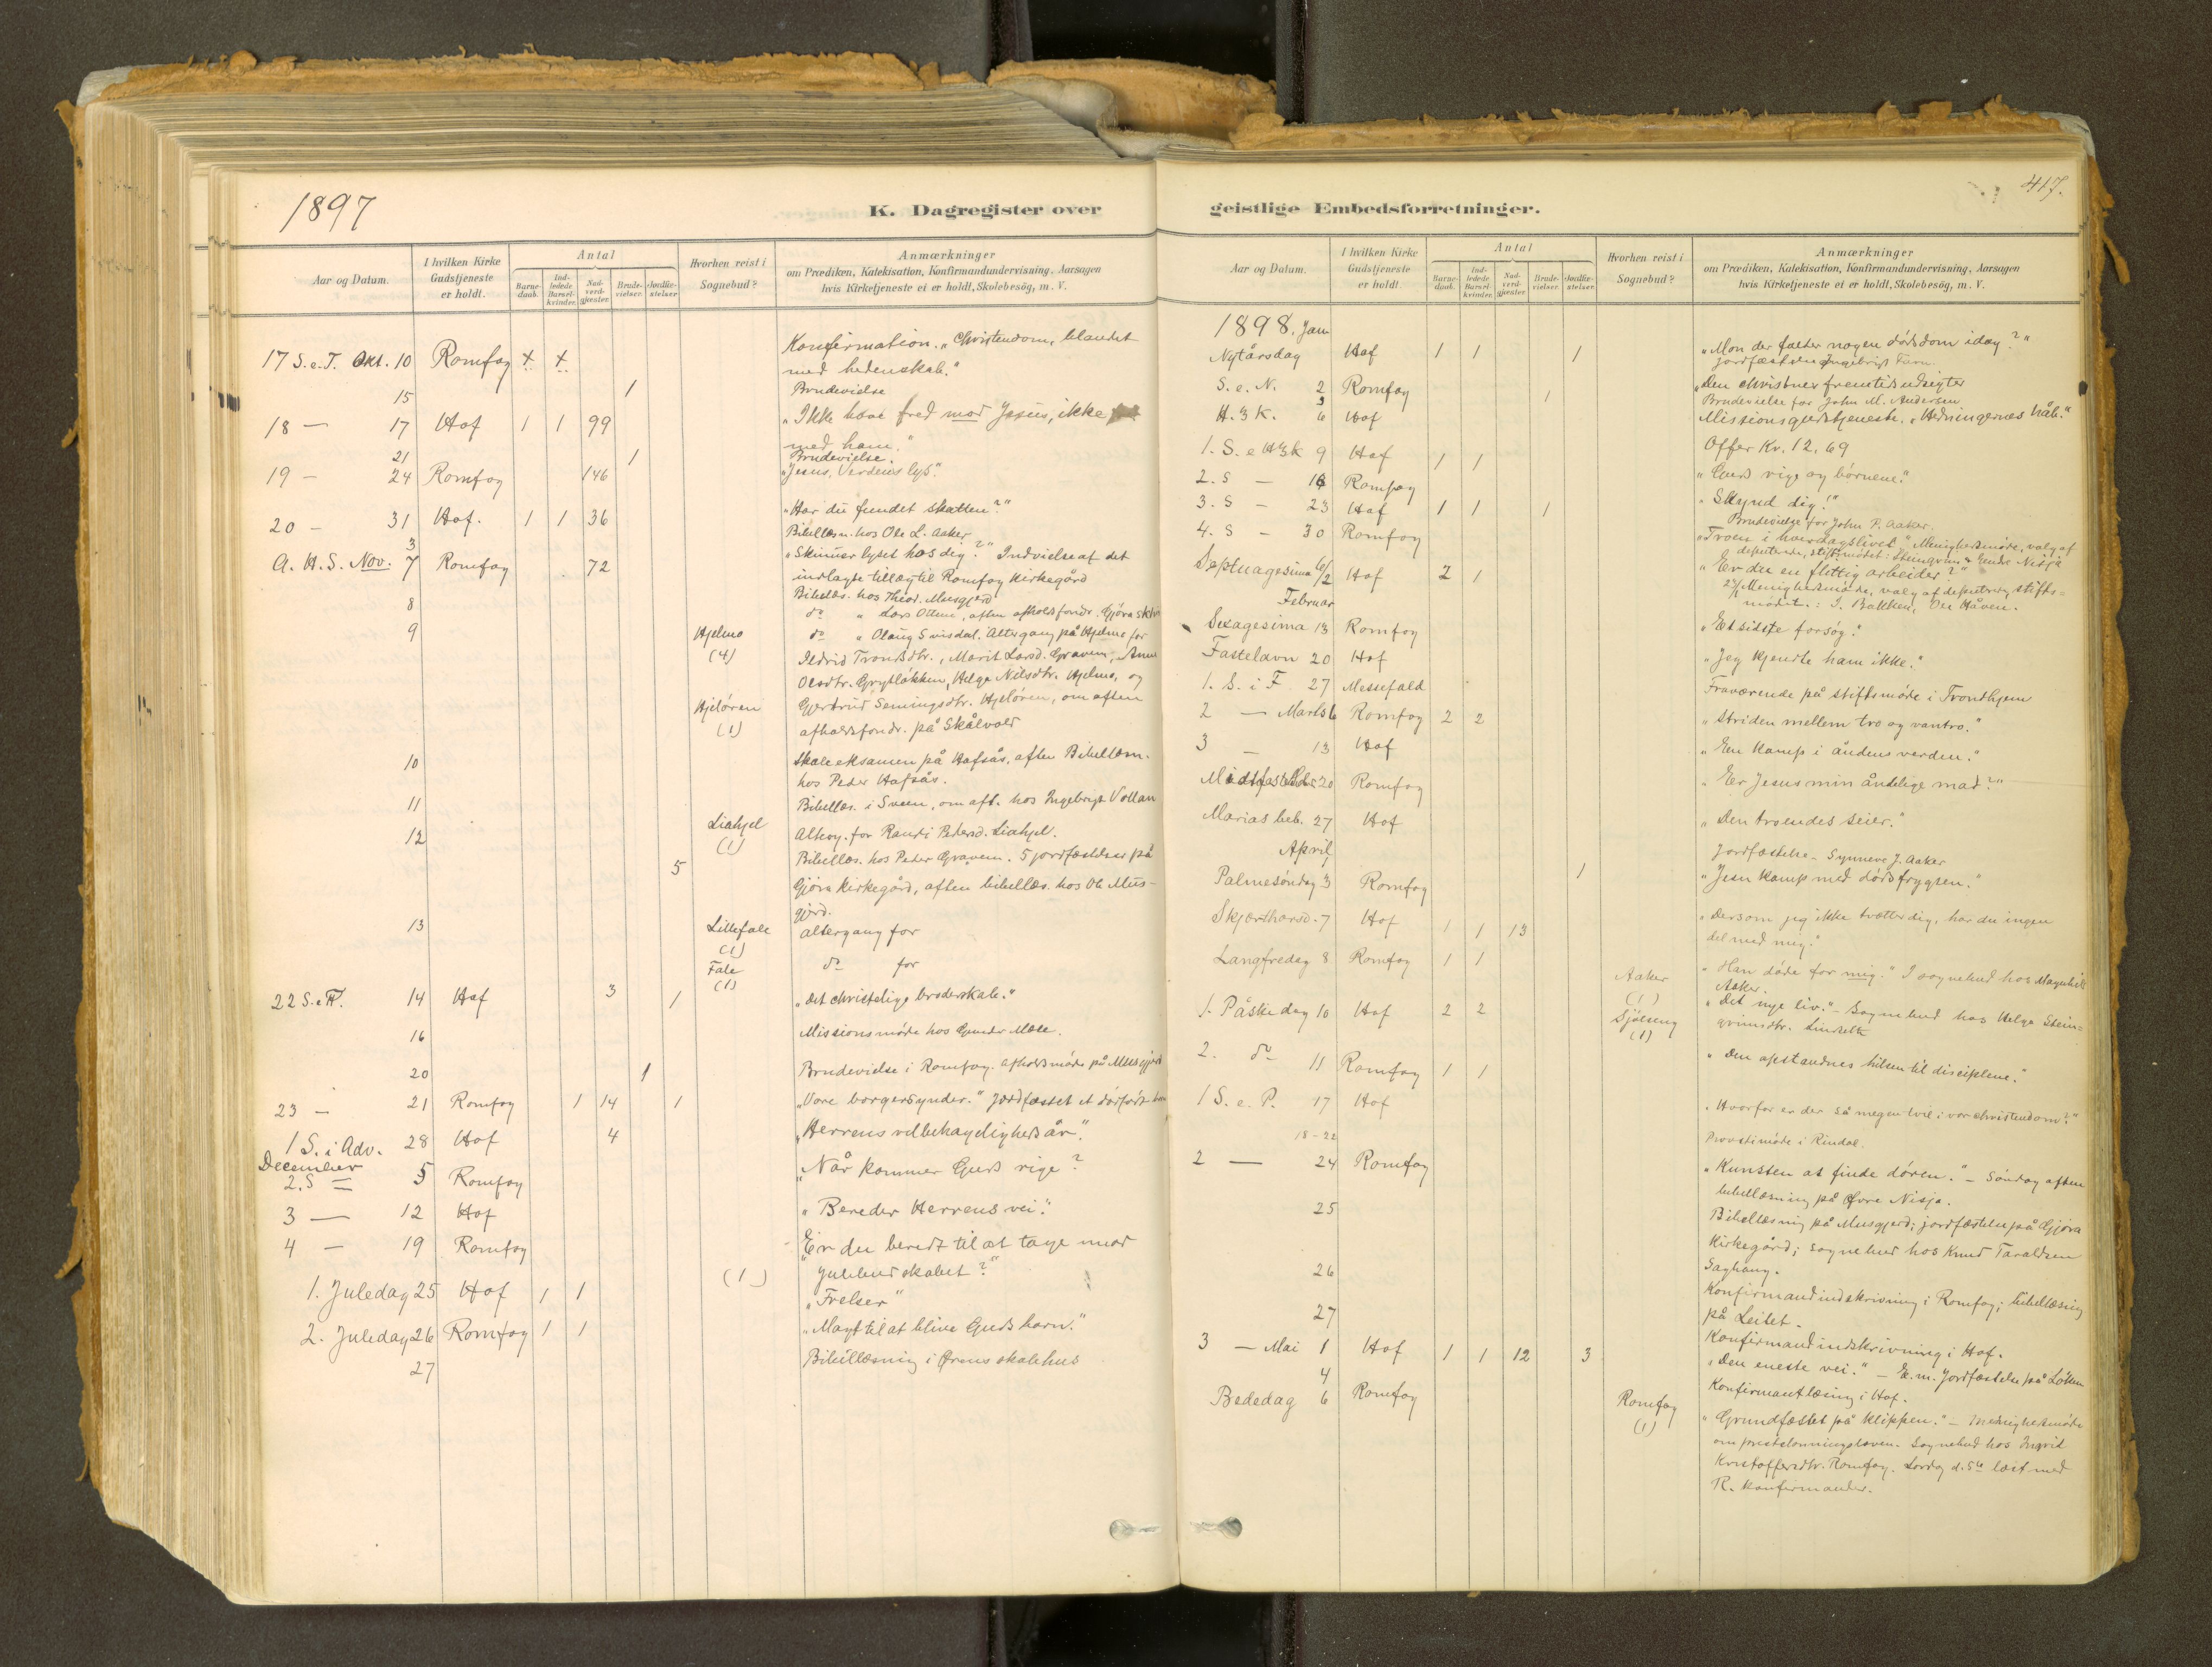 1897
K. Dagregister over
Aar og Datum.
I hvilken Kirke Gudstjeneste er holdt.
Antal
Barnedaab.
Indledede Barselkvinder.
Nadverdgjester.
Brudevielser.
Jordfæstelser.
Hvorhen reist i Sognebud?
Anmærkninger
om Prædiken, Katekisation, Konfirmandundervisning, Aarsagen
hvis Kirketjeneste ei er holdt, Skolebesøg, m. V.
Konfirmation. „Christendom, blandet
17 S.e.T. Okt. 10 Romfog + + med hedenskab."
15 1 Brudevielse
18 — 17 Hof 1 1 99 „Ikke have fred mod Jesus, ikke
med ham."
21 1 Brudevielse.
19 — 24 Romfog 146 „Jesus, Verdens lys."
20 — 31 Hof. 1 1 36 „Har du fundet skatten?"
3 Bibellæsn. hos Ole L. Aaker
A. H. S. Nov. 7 Romfog 72 „Skinner lyset hos dig?" Indvielse af det
indlagte tillæg til Romfog Kirkegård
Bibellæs. hos Theod. Musgjerd
8 do " Lars Ottem, aften afholdsforedr. Gjøra skole
9 Hjelmo (4) do " Olaug Svisdal. Altergang på Hjelmo for
Ildrid Trondsdtr., Marit Larsd. Gravem, Anne
Olsdtr. Grytløkken, Helga Nilsdtr. Hjelmo, og
Hjeløren (1) Gjertrud Semingsdtr. Hjeløren, om aften
afholdsforedr. på Skålvold
10 Skoleeksamen på Hafsås, aften Bibellæsn.
hos Peder Hafsås.
11 Bibellæs. i Sveen, om aft. hos Ingebrigt Vollan
12 Liahjel (1) Alterg. for Randi Pedersd. Liahjel.
5 Bibellæs. hos Peder Gravem. 5 jordfæstelser på
Gjøra Kirkegård, aften bibellæs. hos Ole Mus-
gjerd.
13 Lillefale (1) altergang for
Fale (1) do for
22 S.e.T. 14 Hof 3 1 „Det christelige broderskab."
16 Missionsmøde hos Gunder Mæle.
20 1 Brudevielse i Romfog. Afholdsmøde på Musgjerd
23 — 21 Romfog 1 14 1 „Vore borgersynder." Jordfæstet et dødfødt barn
1 S. i Adv. 28 Hof 4 „Herrens velbehageligheds år".
December
2. S — 5 Romfog „Når kommer Guds rige?
3 — 12 Hof „Bereder Herrens vei."
4 — 19 Romfog „Er du beredt til at tage mod
(1) julebudskabet?"
1. Juledag 25 Hof 1 1 „Frelser"
2. Juledag 26 Romfog 1 1 „Magt til at blive Guds barn."
27 Bibellæsning i Ørens skolehus
417.
geistlige Embedsforretninger.
Aar og Datum.
I hvilken Kirke Gudstjeneste er holdt.
Antal
Barnedaab.
Indledede Barselkvinder.
Nadverdgjester.
Brudevielser.
Jordfæstelser.
Hvorhen reist i Sognebud?
Anmærkninger
om Prædiken, Katekisation, Konfirmandundervisning, Aarsagen
hvis Kirketjeneste ei er holdt, Skolebesøg, m. V.
1898. Jan
Nytårsdag Hof 1 1 1 „Mon der fælder nogen dødsdom idag?"
Jordfæstelse Ingebrigt Furu.
S. e. N. 2 Romfog „Den christnes fremtidsudsigter
3 1 Brudevielse for John M. Andersen
H. 3 K. 6 Hof Missionsgudstjeneste. „Hedningernes håb."
Offer Kr. 12,69
1. S. e H3K 9 Hof 1 1 „Guds rige og børnene."
2. S — 16 Romfog „Skynd dig!"
3. S — 23 Hof 1 1 1 Brudevielse for John P. Aaker.
4. S — 30 Romfog „Troen i hverdagslivet." Menighedsmøde, valg af
deputerede, stiftsmødet: Endre Nisja
Septuagesima 6/2 Hof 2 1 „Er du en flittig arbeider?"
Menighedsmøde, valg af deputerede stifts=
mødet: I. Bakken, Ole Håven.
Februar
Sexagesima 13 Romfog „Et sidste forsøg."
Fastelavn 20 Hof „Jeg kjendte ham ikke."
1. S. i F. 27 Messefald Fraværende på stiftsmøde i Trondhjem
2 — Marts 6 Romfog 2 2 „Striden mellem tro og vantro."
3 — 13 Hof „En kamp i åndens verden."
Midtfaste 20 Romfog „Er Jesus min åndelige mad?"
Marias beb. 27 Hof „Den troendes seier."
April,
1 Jordfæstelse - Synneve J. Aaker
Palmesøndag 3 Romfog „Jesu kamp med dødsfrygten."
Skjærthorsd. 7 Hof 1 1 13 „Dersom jeg ikke tvætter dig, har du ingen
del med mig."
Langfredag 8 Romfog 1 1 Aaker (1) „Han døde for mig." I sognebud hos Magnhild
Aaker.
1. Påskedag 10 Hof 2 2 Sjølseng (1) „Det nye liv." - Sognebud hos Helga Stein=
grimsdtr.
2. do 11 Romfog 1 1 „Den opstandnes hilsen til disciplene."
1 S. e. P. 17 Hof „Hvorfor er der så megen tvil i vor christendom?"
18-22 Provstimøde i Rindal.
2 — 24 Romfog „Kunsten at finde døren." - Søndag aften
bibellæsning på Øvre Nisja.
25 Bibellæsning på Musgjerd; jordfæstelse på Gjøra
Kirkegård; sognebud hos Knud Taraldsen
Saghaug.
26 Konfirmandindskrivning i Romfog; bibellæsing
på Leitet.
27 Konfirmandindskrivning i Hof.
3 — Mai 1 Hof 1 1 12 3 „Den eneste vei." - E. m. Jordfæstelse på Løkken
4 Konfirmantlæsing i Hof.
Bededag 6 Romfog Romfog (1) „Grundfæstet på klippen." - Menighedsmøde
om prestelønningsloven. Sognebud hos Ingrid
Kristoffersdtr. Romfog. Torsdag d. 5te læst med
R. konfirmander.